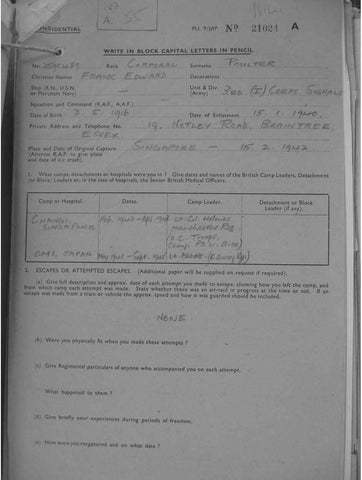 NIL.
A. 55
CONFIDENTIAL
M.I. 9/JAP No 21024 A
WRITE IN BLOCK CAPITAL LETTERS IN PENCIL
No. Rank CORPORAL Surname POULTER
Christian Names FRANK EDWARD Decorations
Ship (R.N., U.S.N. or Merchant Navy) — Unit & Div. (Army) 3RD (I) CORPS SIGNALS
Squadron and Command (R.A.F., A.A.F.) —
Date of Birth 3. 5. 1916 Date of Enlistment 15. 1. 1940.
Private Address and Telephone No. 19, NOTLEY ROAD, BRAINTREE,
ESSEX.
Place and Date of Original Capture SINGAPORE — 15. 2. 1942.
(Aircrew R.A.F. to give place
and date of a/c crash).
1. What camps, detachments or hospitals were you in? Give dates and names of the British Camp Leaders, Detachment
(or Block) Leaders or, in the case of hospitals, the Senior British Medical Officers.
Camp or Hospital. Dates. Camp Leader. Detachment or Block Leader (if any).
CHANGI, Feb. 1942 - Apl. 1943 Lt-Col. Holmes
SINGAPORE Manchester Reg.
(O.C. Troops,
OMI, JAPAN May 1943 - Sept. 1945 Lt.
2. ESCAPES OR ATTEMPTED ESCAPES. (Additional paper will be supplied on request if required).
(a) Give full description and approx. date of each attempt you made to escape, showing how you left the camp, and
from which camp each attempt was made. State whether there was an air-raid in progress at the time or not. If an
escape was made from a train or vehicle the approx. speed and how it was guarded should be included.
NONE.
(b) Were you physically fit when you made these attempts?
(c) Give Regimental particulars of anyone who accompanied you on each attempt.
What happened to them?
(d) Give briefly your experiences during periods of freedom.
(e) How were you recaptured and on what date?